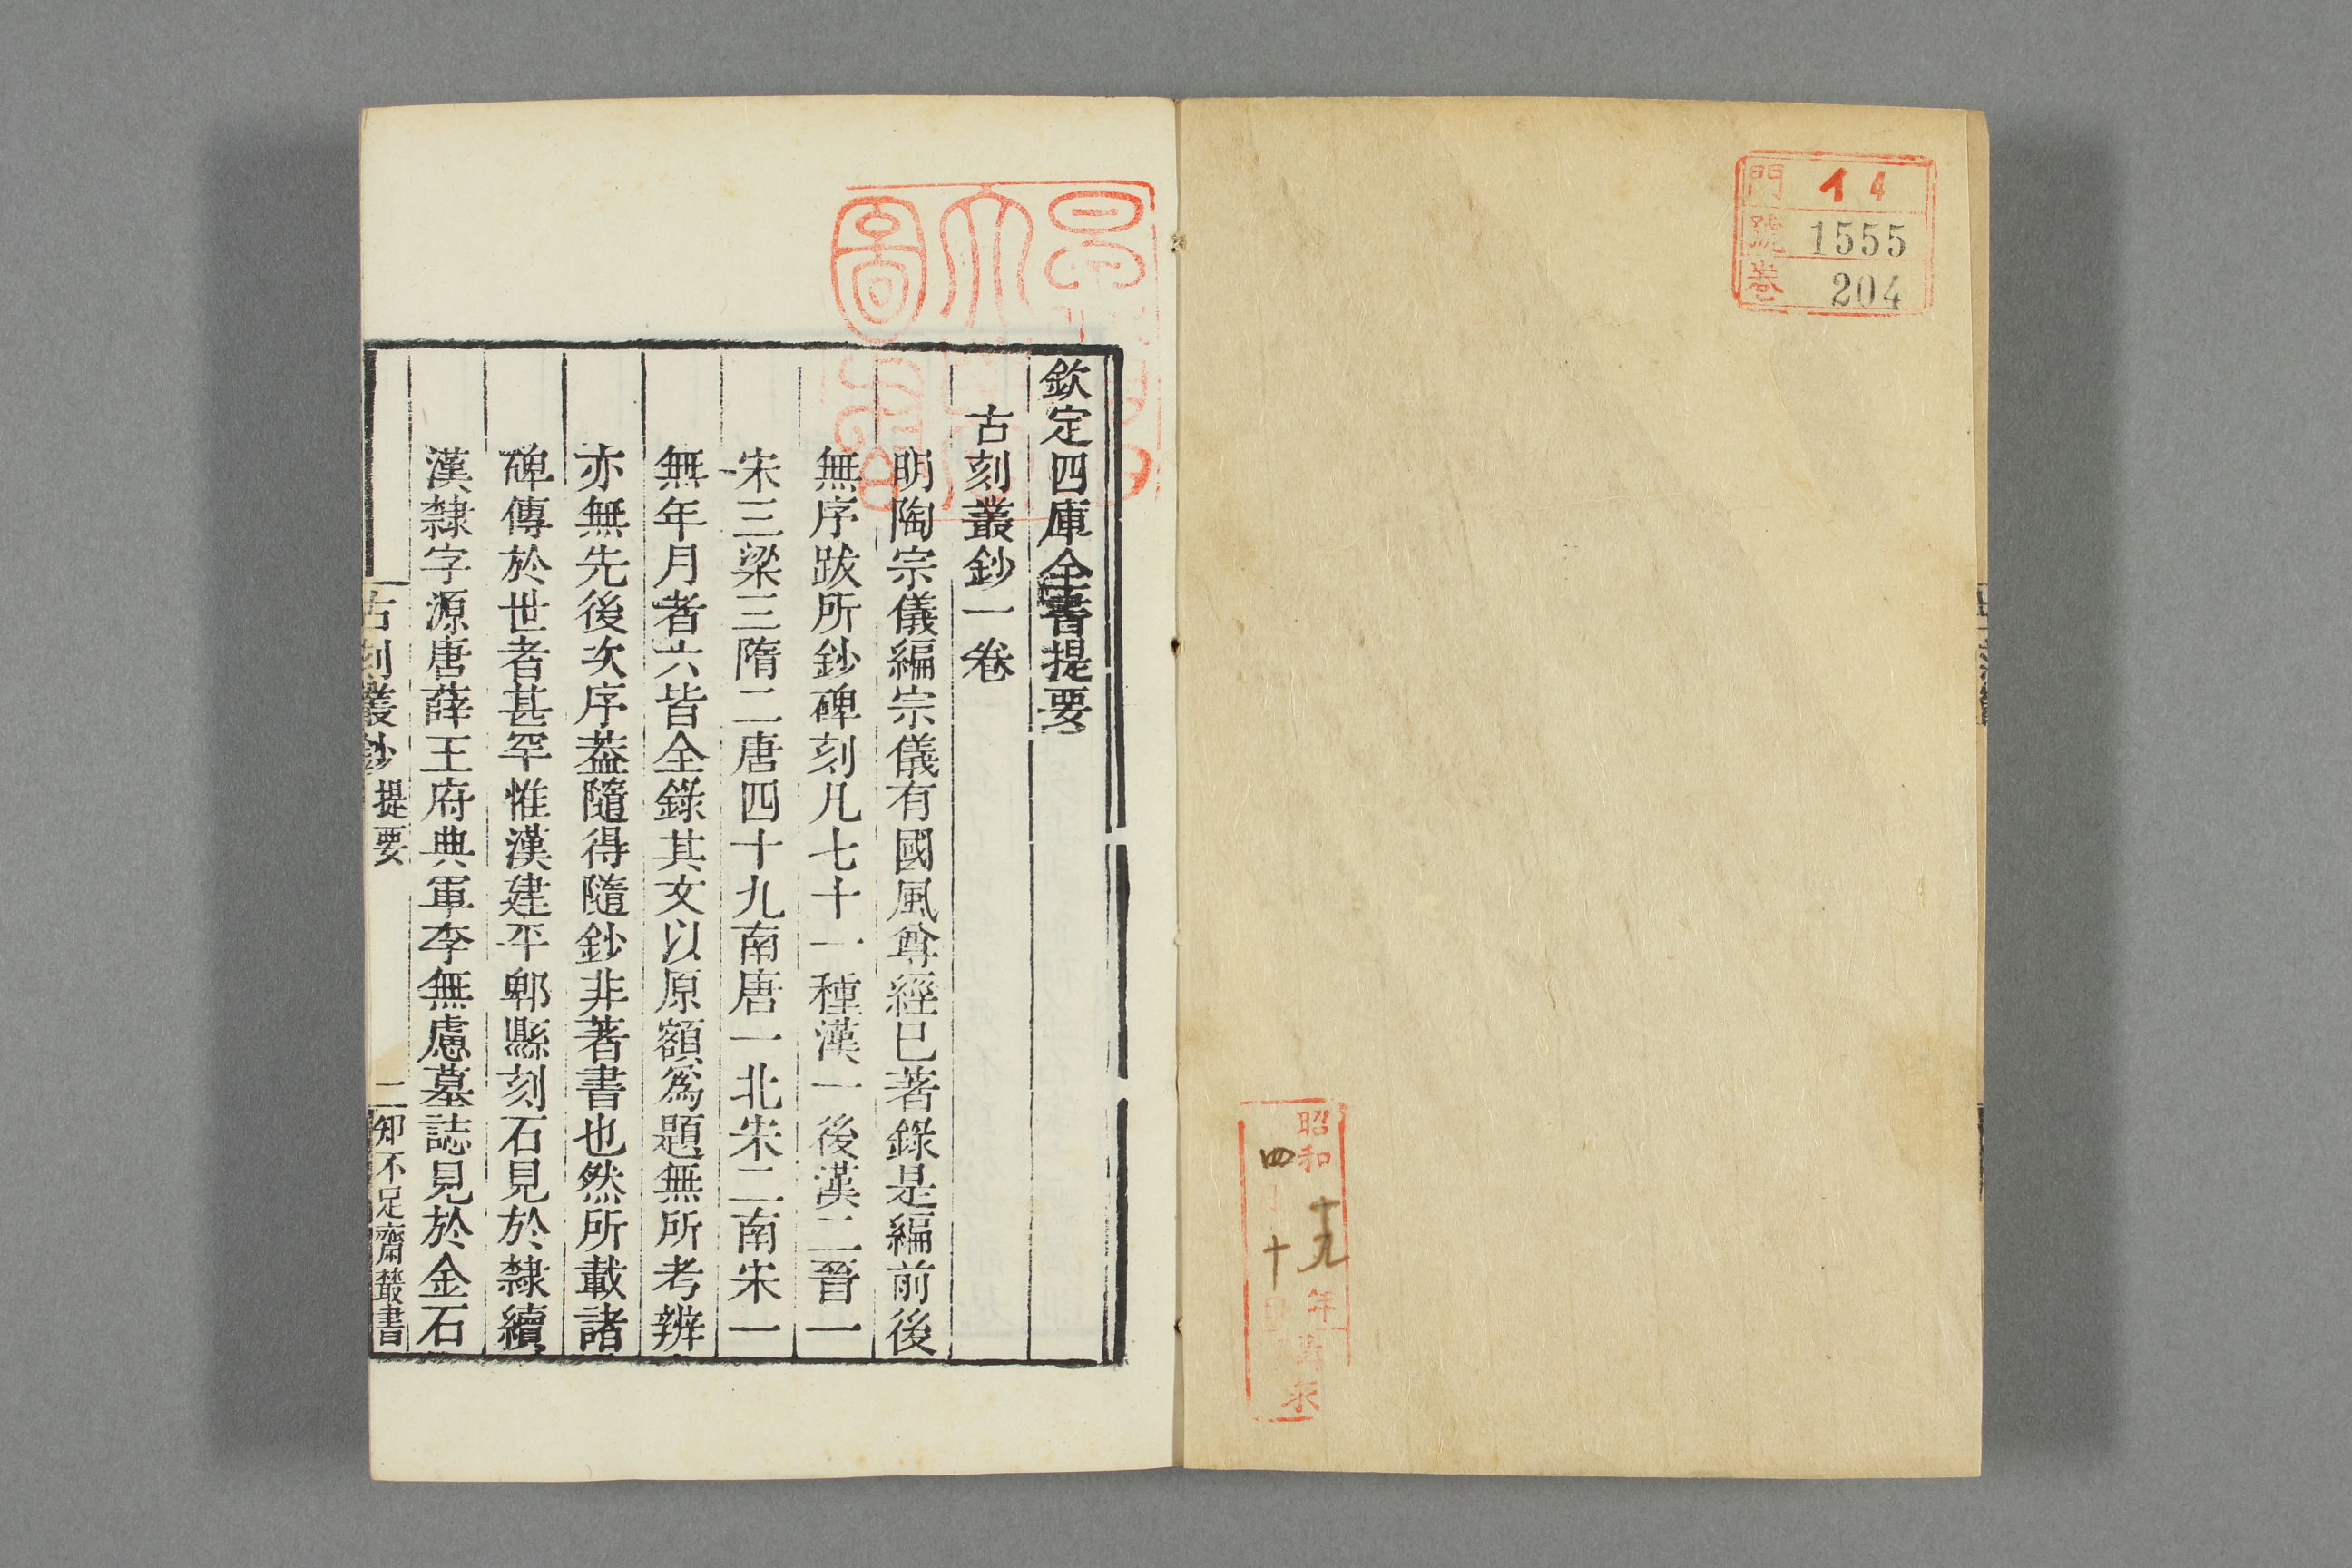 門 イ 4
號 1555
巻 204
昭和十九年
四月十日
欽定四庫全書提要
古刻叢鈔一卷
明陶宗儀編宗儀有國風尊經已著錄是編前後
無序跋所鈔碑刻凡七十一種漢一後漢二晉一
宋三梁三隋二唐四十九南唐一北宋二南宋一
無年月者六皆全錄其文以原額爲題無所考辨
亦無先後次序葢隨得隨鈔非著書也然所載諸
碑傳於世者甚罕惟漢建平郫縣刻石見於隸續
漢隸字源唐薛王府典軍李無慮墓誌見於金石
古刻叢鈔 提要
知不足齋叢書